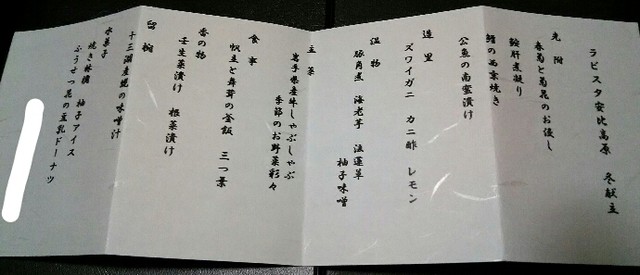 ラビスタ安比高原　冬献立
先附
春菊と菊花のお浸し
鮟肝煮凝り
鱈の西京焼き
公魚の南蛮漬け
造里
ズワイガニ　カニ酢　レモン
温物
豚角煮　海老芋　法蓮草
柚子味噌
主菜
岩手県産牛しゃぶしゃぶ
季節のお野菜彩々
食事
帆立と舞茸の釜飯　三つ葉
香の物
壬生菜漬け　根菜漬け
留椀
十三湖産蜆の味噌汁
水菓子
焼き林檎　柚子アイス
ふうせつ花の豆乳ドーナツ